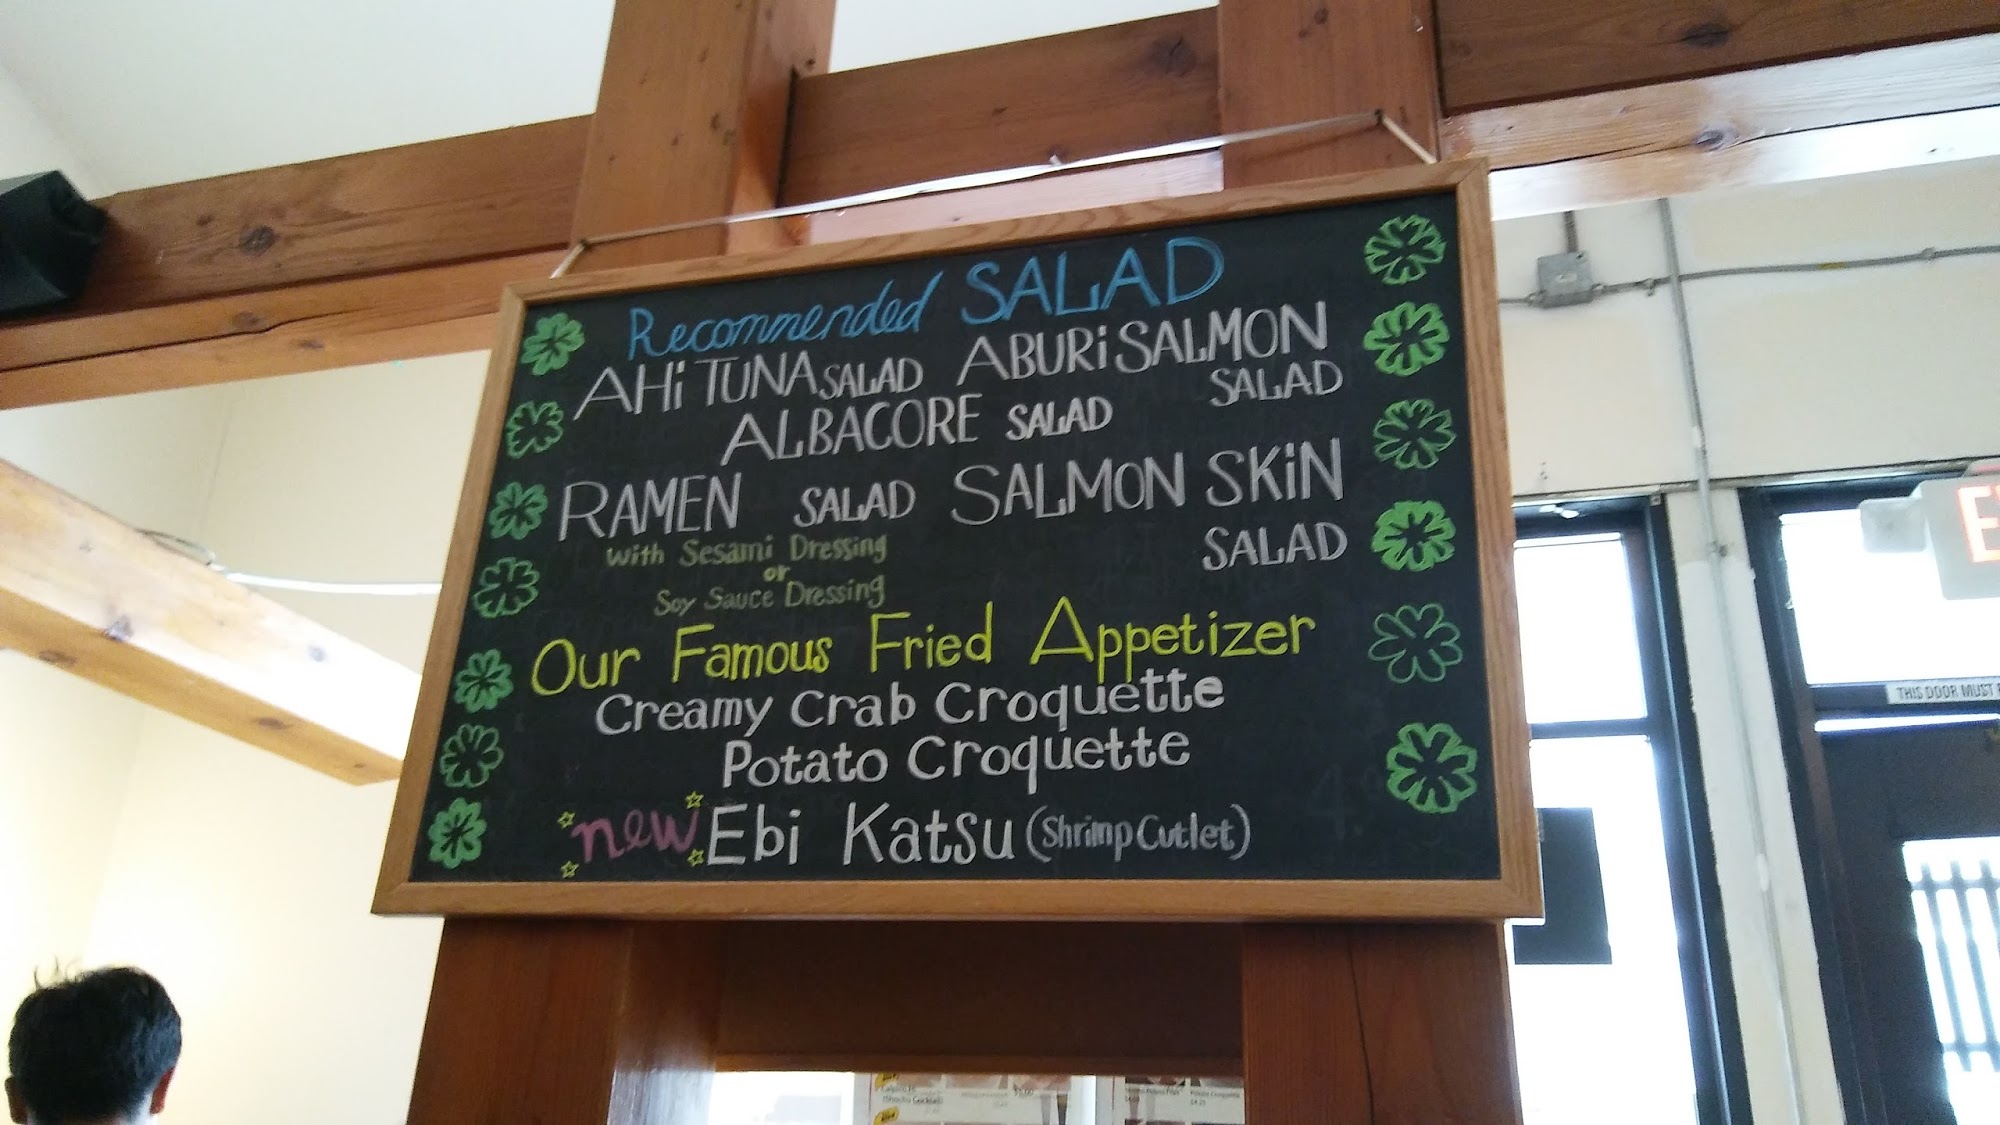 Recommended SALAD
AHi TUNA SALAD ABURi SALMON SALAD
ALBACORE SALAD
RAMEN SALAD SALMON SKiN SALAD
With Sesami Dressing
or
Soy Sauce Dressing
Our Famous Fried Appetizer
Creamy Crab Croquette
Potato Croquette
new Ebi Katsu (Shrimp Cutlet)
THIS DOOR MUST